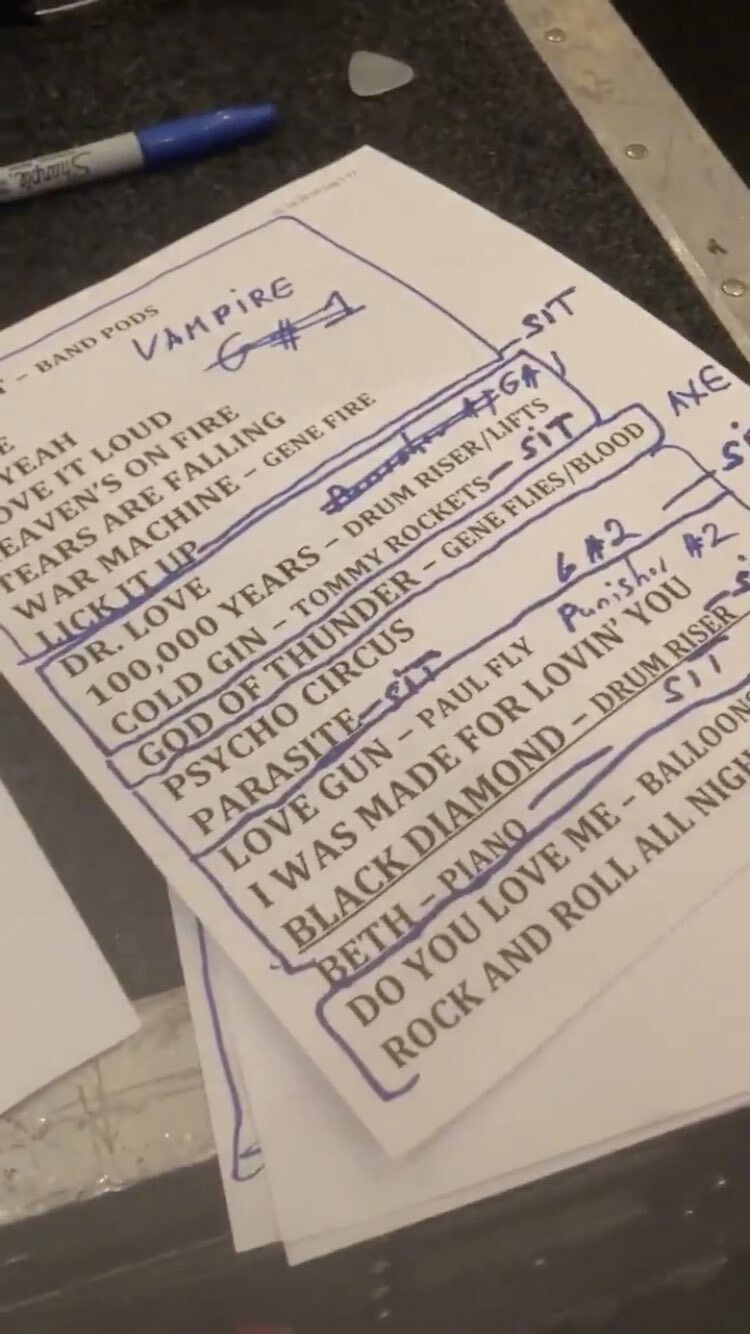 Sharpie
T – BAND PODS
VAMPIRE
G#1
SIT
E
YEAH
OVE IT LOUD
EAVEN'S ON FIRE
TEARS ARE FALLING
WAR MACHINE – GENE FIRE
LICK IT UP
Punisher #1 G#1
DR. LOVE
100,000 YEARS – DRUM RISER/LIFTS
COLD GIN – TOMMY ROCKETS – SIT
GOD OF THUNDER – GENE FLIES/BLOOD
AXE
PSYCHO CIRCUS
PARASITE – SIT
G#2
LOVE GUN – PAUL FLY
Punisher #2
I WAS MADE FOR LOVIN' YOU
BLACK DIAMOND – DRUM RISER
SIT
BETH – PIANO
DO YOU LOVE ME – BALLOON
ROCK AND ROLL ALL NIGH